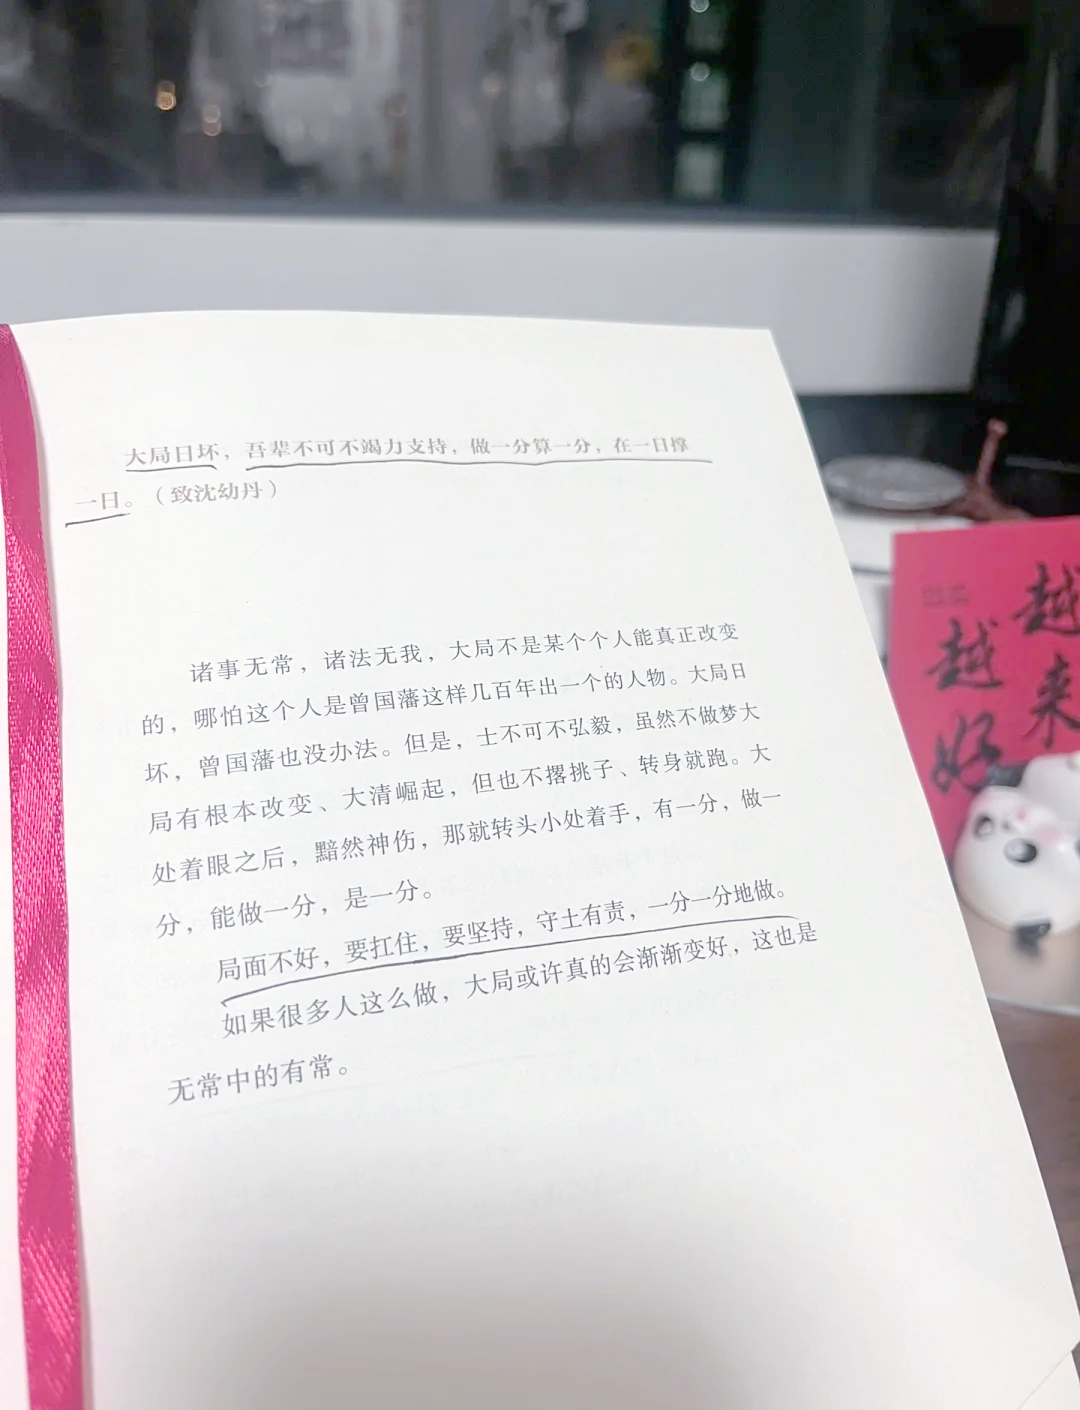 大局日坏，吾辈不可不竭力支持，做一分算一分，在一日撑
一日。（致沈幼丹）
诸事无常，诸法无我，大局不是某个个人能真正改变
的，哪怕这个人是曾国藩这样几百年出一个的人物。大局日
坏，曾国藩也没办法。但是，士不可不弘毅，虽然不做梦大
局有根本改变、大清崛起，但也不撂挑子、转身就跑。大
处着眼之后，黯然神伤，那就转头小处着手，有一分，做一
分，能做一分，是一分。
局面不好，要扛住，要坚持，守土有责，一分一分地做。
如果很多人这么做，大局或许真的会渐渐变好，这也是
无常中的有常。
越来
越好